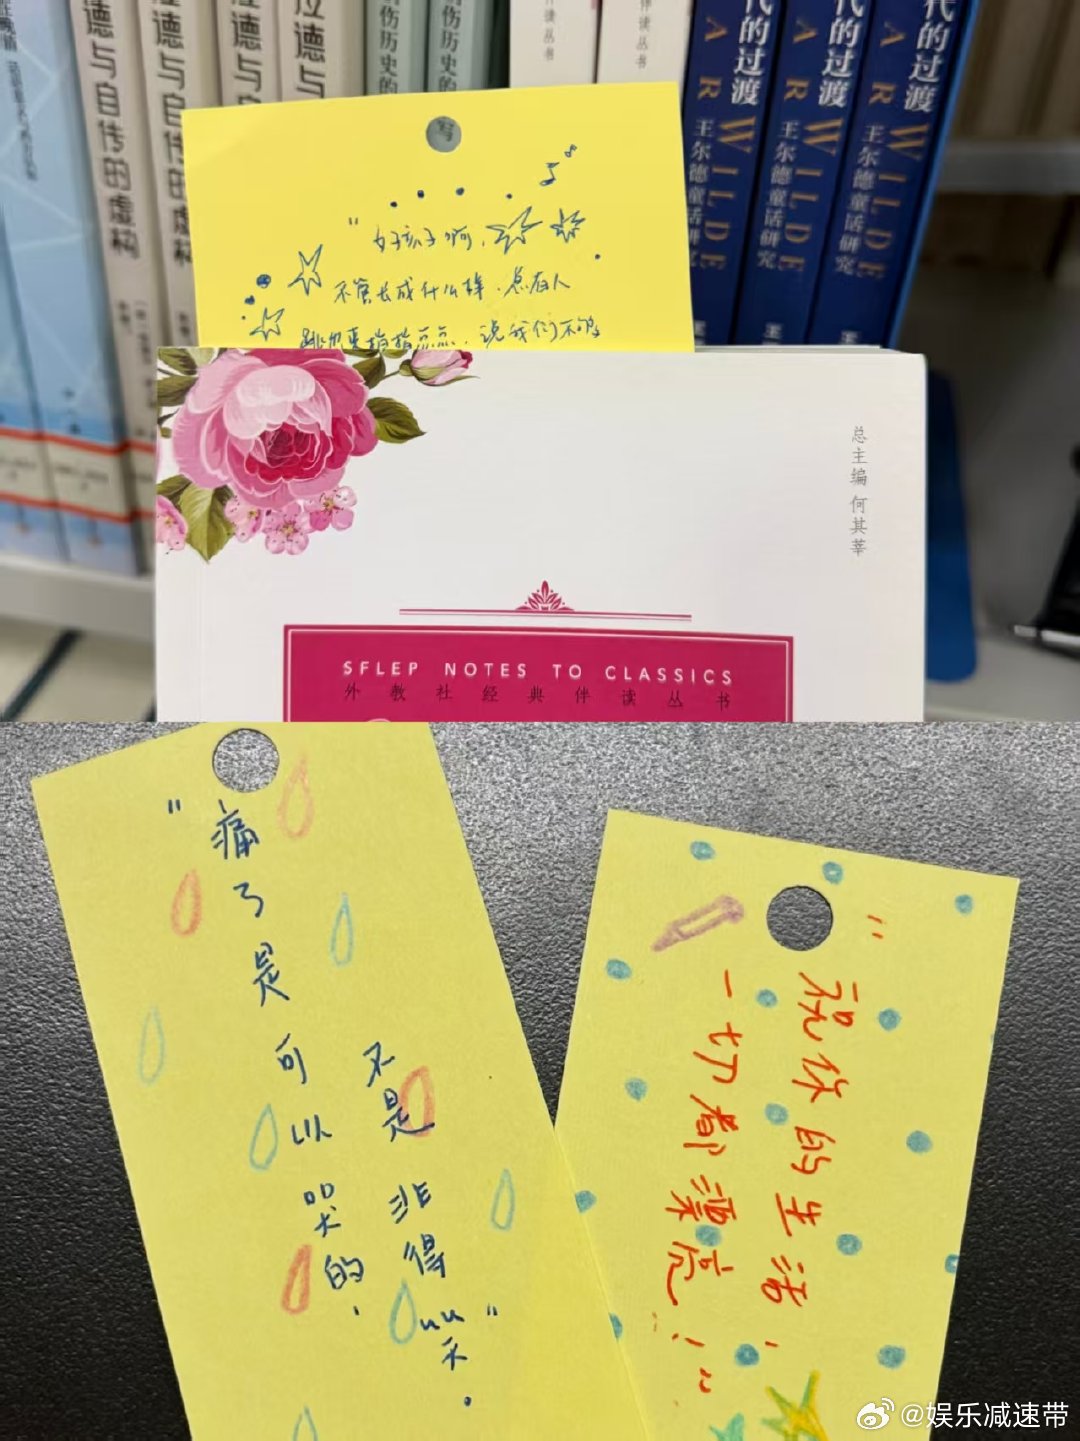 德与自传的虚构
德与自传的虚构
拉德与自
拉德与
的伤历史的
伤历史的
伴读丛书
伴读丛书
代的过渡
WILDE
A R
王尔德童话研究
王
代的过渡
WILDE
A R
王尔德童话研究
王
代的过渡
WILDE
A R
王尔德童话研究
王
写
“女孩子啊，
不管长成什么样，总有人
跳出来指指点点，说我们不够
总主编 何其莘
SFLEP NOTES TO CLASSICS
外教社经典伴读丛书
“痛了是可以哭的，
不是非得笑。”
“祝你的生活，
一切都漂亮！”
@娱乐减速带